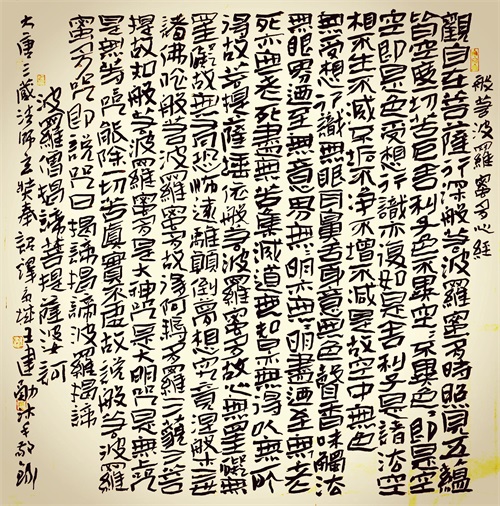 般若波羅蜜多心經
觀自在菩薩行深般若波羅蜜多時照見五蘊
皆空度一切苦厄舍利子色不異空〻不異色〻即是空
空即是色受想行識亦復如是舍利子是諸法空
相不生不滅不垢不淨不增不減是故空中無色
無受想行識無眼耳鼻舌身意無色聲香味觸法
無眼界迺至無意界無〻明亦無〻明盡迺至無老
死亦無老死盡無苦集滅道無智亦無得以無所
得故菩提薩埵依般若波羅蜜多故心無罣礙無
罣礙故無有恐怖遠離顛倒夢想究竟涅槃三世
諸佛依般若波羅蜜多故得阿耨多羅三藐三菩
提故知般若波羅蜜多是大神咒是大明咒是無上咒
是無等〻咒能除一切苦真實不虛故說般若波羅
蜜多咒即說咒曰揭諦揭諦波羅揭諦
波羅僧揭諦菩提薩婆訶
大唐三藏法師玄奘奉詔譯 王建勳沐手敬錄